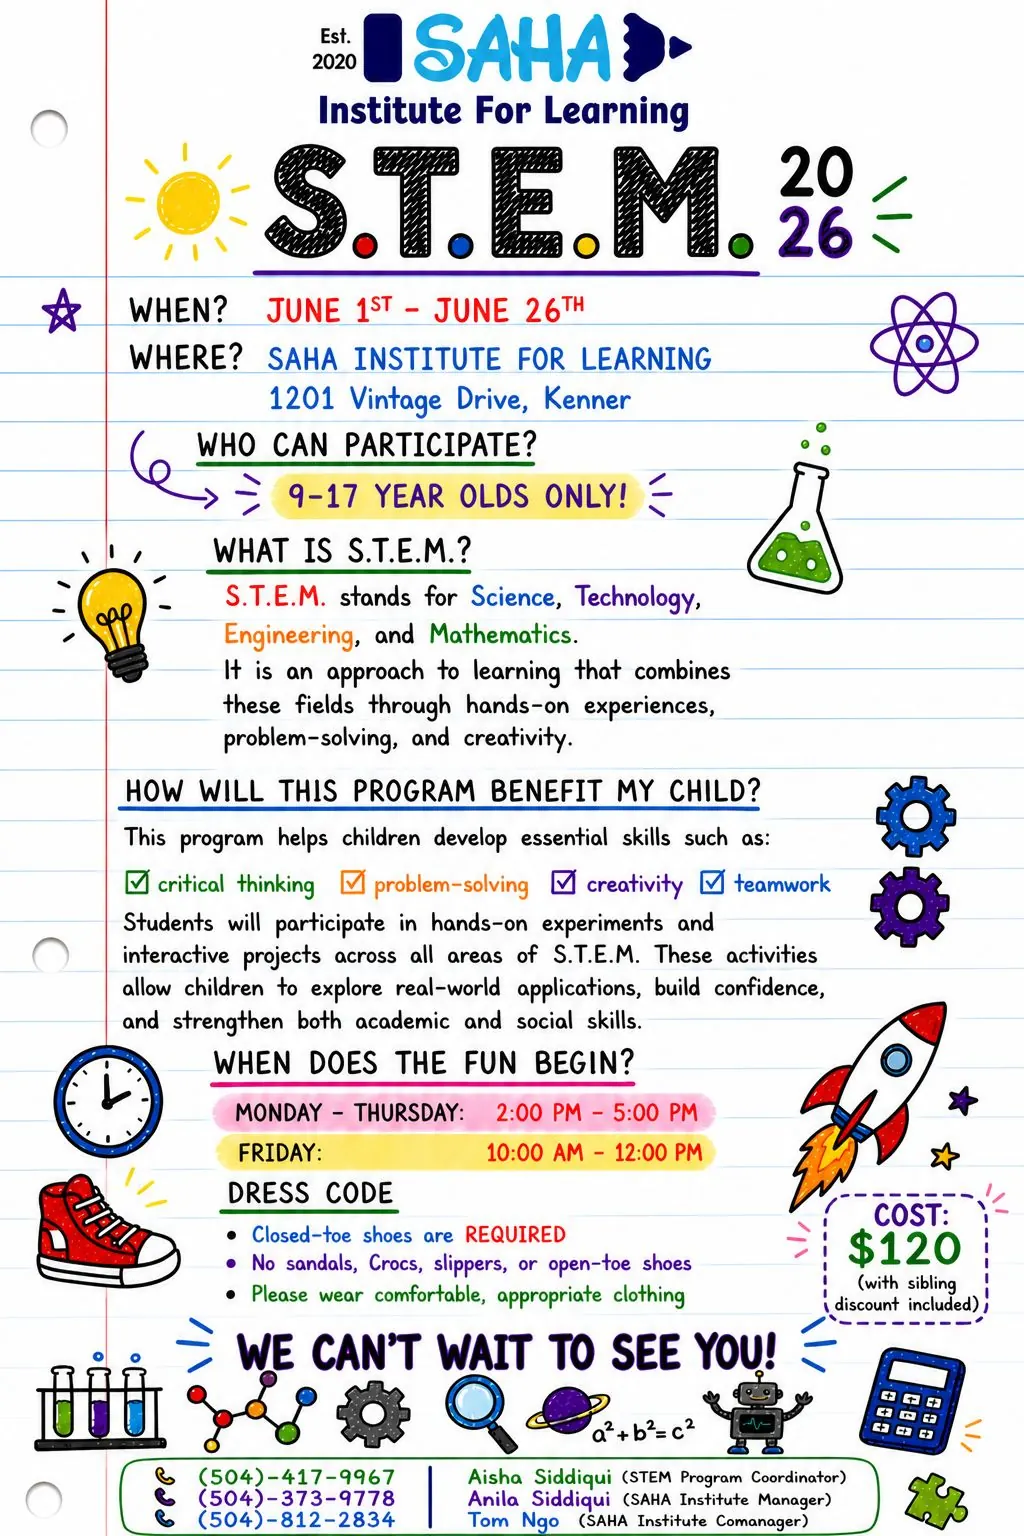 Est.
2020
SAHA
Institute For Learning
S.T.E.M.
20
26
WHEN? JUNE 1ST - JUNE 26TH
WHERE? SAHA INSTITUTE FOR LEARNING
1201 Vintage Drive, Kenner
WHO CAN PARTICIPATE?
9-17 YEAR OLDS ONLY!
WHAT IS S.T.E.M.?
S.T.E.M. stands for Science, Technology,
Engineering, and Mathematics.
It is an approach to learning that combines
these fields through hands-on experiences,
problem-solving, and creativity.
HOW WILL THIS PROGRAM BENEFIT MY CHILD?
This program helps children develop essential skills such as:
☑ critical thinking ☑ problem-solving ☑ creativity ☑ teamwork
Students will participate in hands-on experiments and
interactive projects across all areas of S.T.E.M. These activities
allow children to explore real-world applications, build confidence,
and strengthen both academic and social skills.
WHEN DOES THE FUN BEGIN?
MONDAY - THURSDAY: 2:00 PM - 5:00 PM
FRIDAY: 10:00 AM - 12:00 PM
DRESS CODE
• Closed-toe shoes are REQUIRED
• No sandals, Crocs, slippers, or open-toe shoes
• Please wear comfortable, appropriate clothing
COST:
$120
(with sibling
discount included)
WE CAN'T WAIT TO SEE YOU!
a²+b²=c²
(504)-417-9967 Aisha Siddiqui (STEM Program Coordinator)
(504)-373-9778 Anila Siddiqui (SAHA Institute Manager)
(504)-812-2834 Tom Ngo (SAHA Institute Comanager)